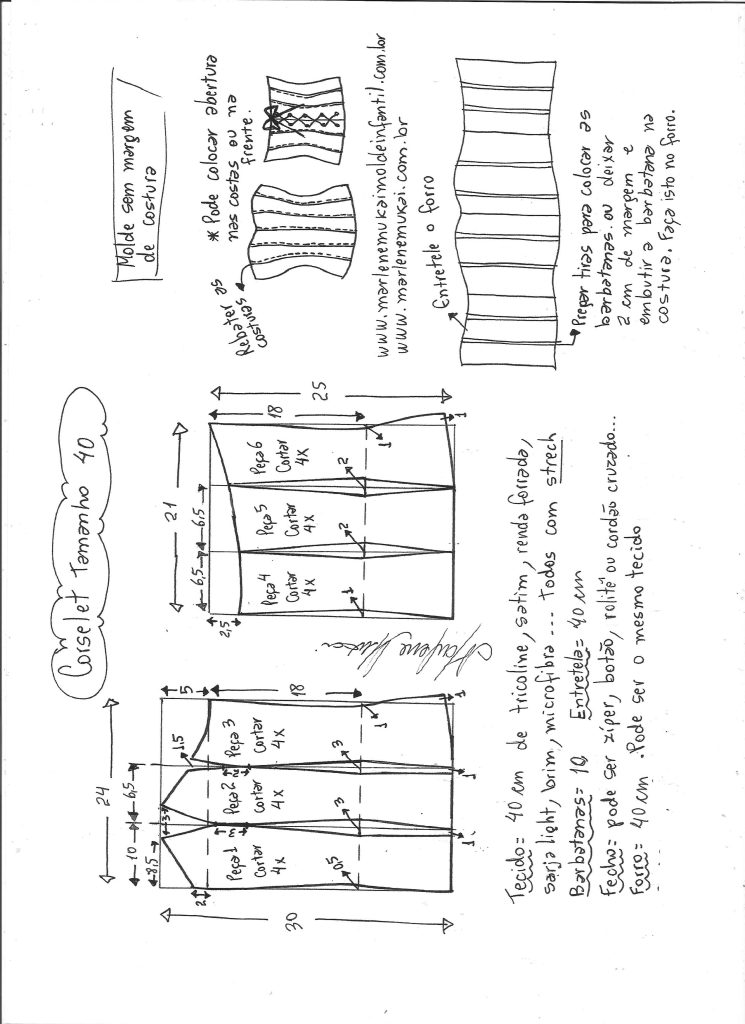 Corselet Tamanho 40
Molde sem margem
de costura
24
10
6,5
8,5
3
1,5
5
2
30
18
Peça 1
Cortar
4x
Peça 2
Cortar
4x
Peça 3
Cortar
4x
3
2
0,5
3
3
1
1
1
1
21
6,5
6,5
2,5
18
25
Peça 4
Cortar
4x
Peça 5
Cortar
4x
Peça 6
Cortar
4x
1
2
2
1
1
Marlene Mukai
Rebater as
costuras
* Pode colocar abertura
nas costas ou na
frente.
www.marlenemukaimoldeinfantil.com.br
www.marlenemukai.com.br
Entretele o forro
Prepar tiras para colocar as
barbatanas. ou deixar
2 cm de margem e
embutir a barbatana na
costura. Faça isto no forro.
Tecido = 40 cm de tricoline, satim, renda forrada,
sarja light, brim, microfibra ... Todos com strech
Barbatanas = 10 Entretela = 40 cm
Fecho = pode ser zíper, botão, rolitê ou cordão cruzado...
Forro = 40 cm. Pode ser o mesmo tecido
.....